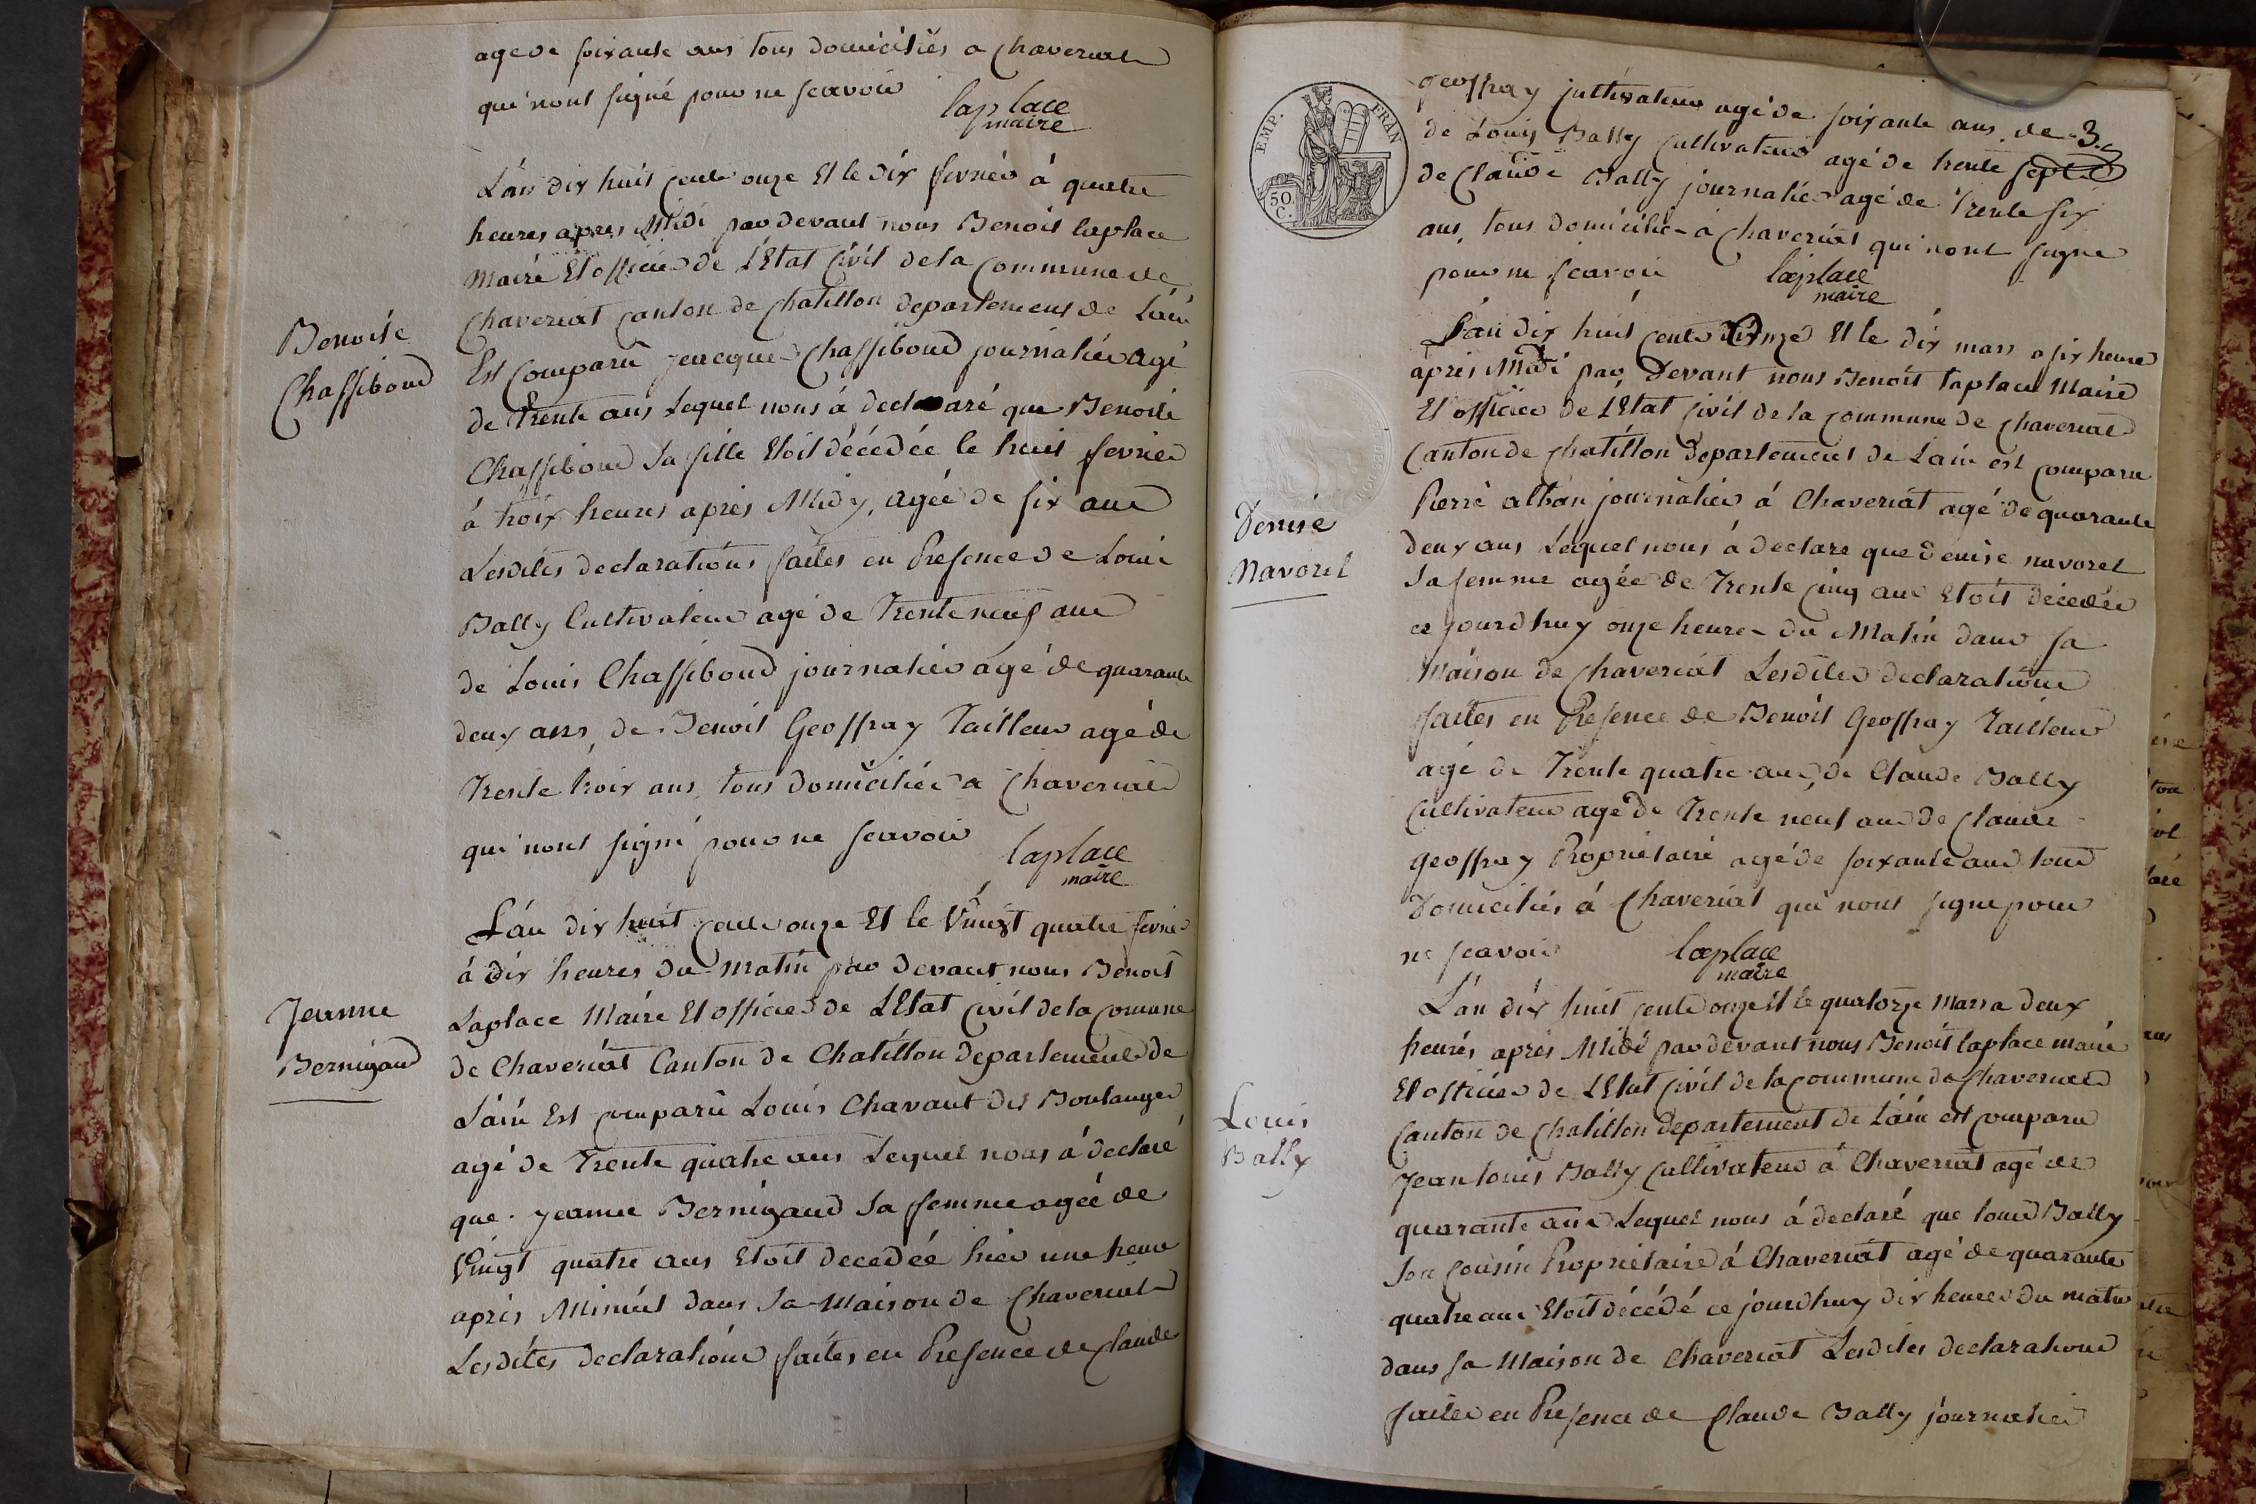 agé de soixante ans tous domiciliés a chaveriat
qui nont signé pour ne scavoir
laplace
maire
Lán dix huit cent onze Et le dix fevrier à quatre
heures apres Midi par devant nous Benoit laplace
Maire Et officier de LÉtat Civil de la Commune de
Chaveriat Canton de Chatillon departement de Láin
Benoite
Chassiboud
Est Comparu Jeacques Chassiboud journalier agé
de Trente ans Lequel nous á declaré que Benoite
Chassiboud Sa fille Etoit décédée le huit fevrier
á troix heures apres Midy, agée de six ans
Lesdites declarations faites en Presence de Louis
Bally Cultivateur agé de Trente neuf ans
de Louis Chassiboud journalier agé de quarante
deux ans, de Benoit Geoffray Tailleur agé de
Trente troix ans, tous domiciliés a Chaveriat
qui nont signé pour ne scavoir
laplace
maire
Lán dix huit cent onze Et le Vingt quatre fevrier
á dix heures du matin par devant nous Benoit
Jeanne
Bernigaud
Laplace Maire Et officier de LEtat Civil de la Comune
de Chaveriat Canton de Chatillon departement de
Láin Est comparu Louis Chavant dit Boulanger
agé de Trente quatre ans Lequel nous á declaré
que Jeanne Bernigaud Sa femme agée de
Vingt quatre ans Etoit decedée hier une heure
apres Minuit dans Sa Maison de Chaveriat
Lesdites declarations faites en Presence de Claude
EMP. FRAN
50 C.
geoffray Cultivateur agé de soixante ans de
de Louis Bally Cultivateur agé de trente
de Claude Bally journalier agé de Trente six
ans, tous domiciliés a Chaveriat qui nont signé
pour ne scavoir
laplace
maire
Lán dix huit cent onze Et le dix mars a six heures
apres Midi par Devant nous Benoit laplace Maire
Et officier de LEtat Civil de la Commune de Chaveriat
Canton de chatillon Departement de Láin est comparu
Denise
Navoret
Pierre alban journalier á Chaveriat agé de quarante
deux ans Lequel nous á declare que denise navoret
Sa femme agée de Trente cinq ans Etoit décedée
ce jourdhuy onze heures du Matin dans sa
Maison de Chaveriat Lesdites declarations
faites en Presence de Benoit Geoffray Tailleur
agé de Trente quatre ans, de Claude Bally
Cultivateur agé de Trente neuf ans de Claude
geoffray Proprietaire agé de soixante ans tous
Domiciliés á Chaveriat qui nont signe pour
ne scavoir
laplace
maire
Lán dix huit cent onze Et le quatorze Mars a deux
heures apres Midi par devant nous Benoit laplace maire
Et officier de LEtat Civil de la Commune de Chaveriat
Canton de Chatillon departement de Láin est comparu
Louis
Bally
Jean louis Bally Cultivateur á Chaveriat agé de
quarante ans Lequel nous á declaré que louis Bally
Son Cousin Proprietaire á Chaveriat agé de quarante
quatre ans Etoit décédé ce jourdhuy dix heures du matin
dans sa Maison de Chaveriat Lesdites declarations
faites en Presence de Claude Bally journalier